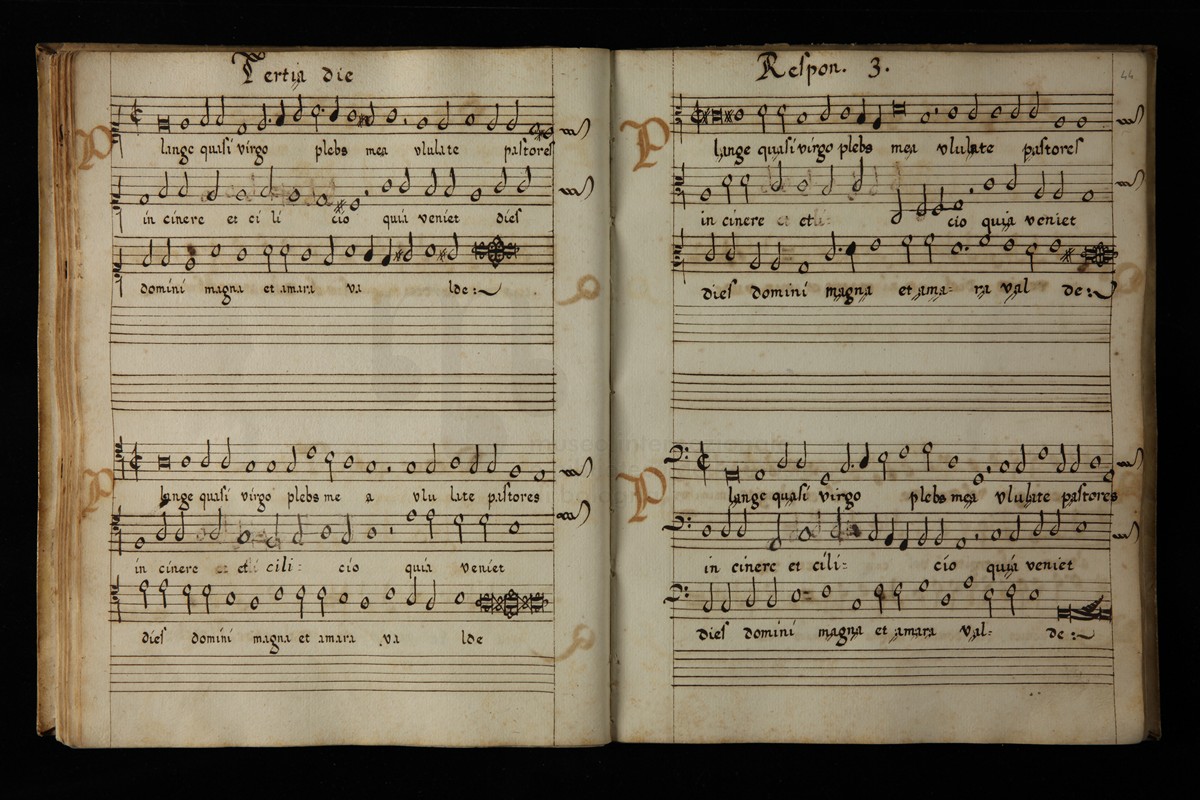 Tertia die
P lange quasi virgo plebs mea vlulate pastores
in cinere et ci li cio quia veniet dies
domini magna et amara va lde
P lange quasi virgo plebs me a vlu late pastores
in cinere et cili: cio quia veniet
dies domini magna et amara va lde
Respon. 3.
44
P lange quasi virgo plebs mea vlulate pastores
in cinere et cio quia veniet
dies domini magna et ama: ra val de:
P lange quasi virgo plebs mea vlulate pastores
in cinere et cili: cio quia veniet
dies domini magna et amara val: de: